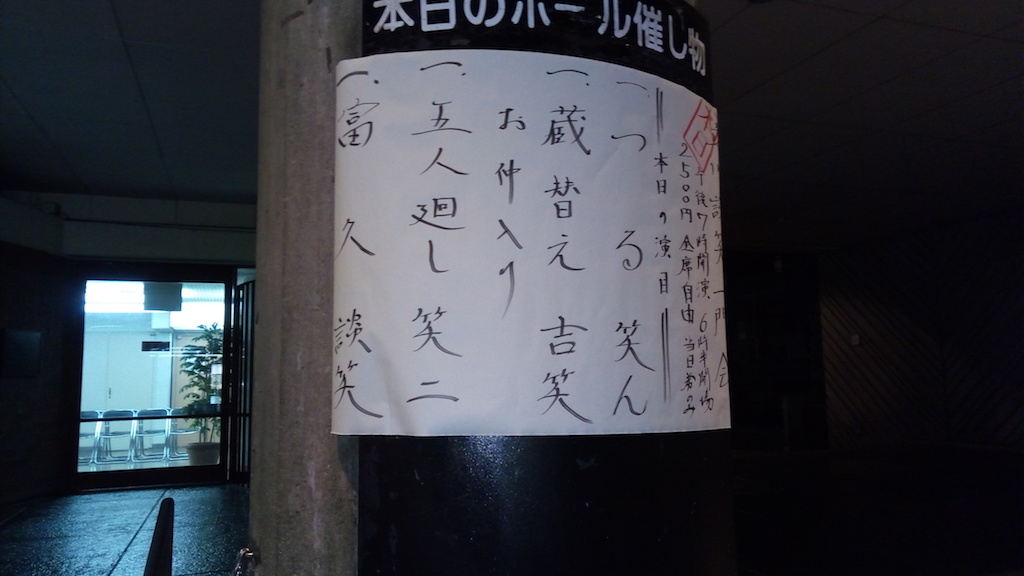 本日のホール催し物
談笑一門会
本日
午後7時開演 6時半開場
2500円 全席自由 当日券のみ
本日の演目
一、つる 笑ん
一、蔵替え 吉笑
お仲入り
一、五人廻し 笑二
一、富久 談笑